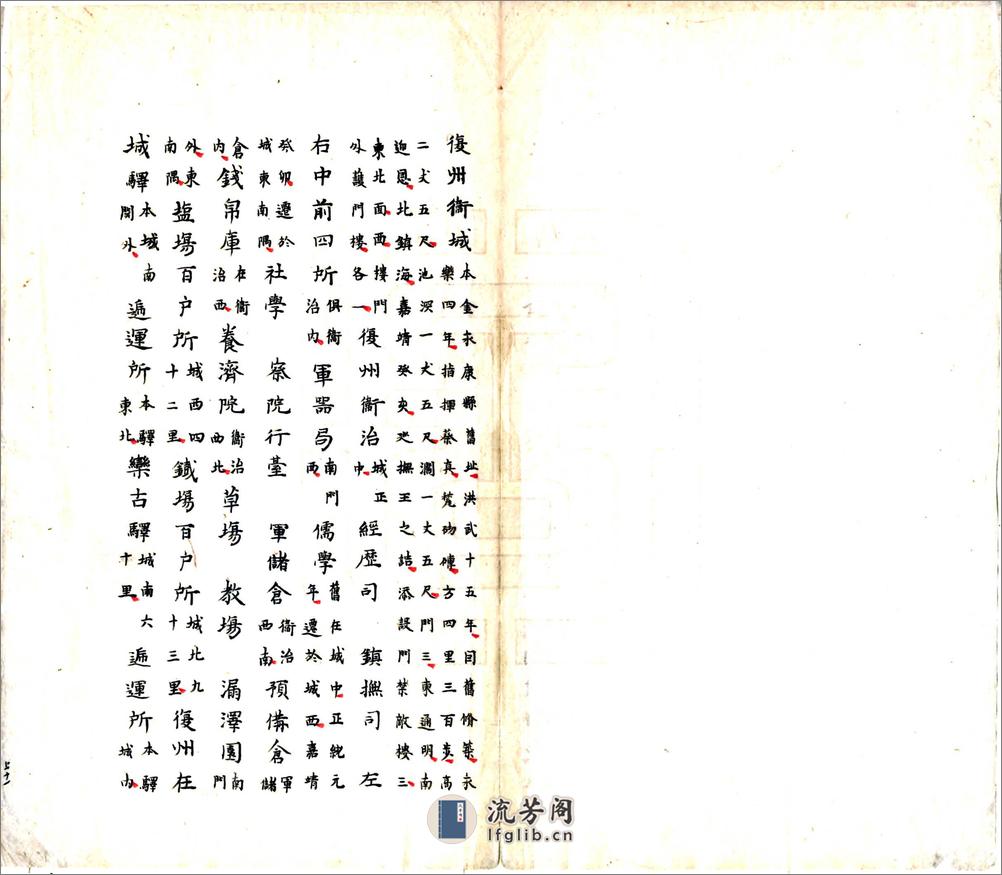 復州衛城本金永康縣舊址洪武十五年因舊脩築永樂四年指揮蔡真甃砌磚方四里三百步高
二丈五尺池深一丈五尺濶一丈五尺門三東通明南迎恩北鎮海嘉靖癸亥廵撫王之誥添設門禁敵樓三
東北面西樓門外護門樓各一復州衛治城正中經歷司 鎮撫司 左
右中前四所俱衛治内軍器局南門西儒學舊在城中正統元年遷於城西嘉靖
癸夘遷於城東南隅社學 察院行臺 軍儲倉衛治西南預備倉軍儲
倉内錢帛庫在衛治西養濟院衛治西北草塲 教塲 漏澤園南門
外東南隅盐塲百户所城西四十二里鐵塲百户所城北九十三里復州在
城驛本城南関外遞運所本驛東北欒古驛城南六十里遞運所本驛城内
流芳阁
lfglib.cn